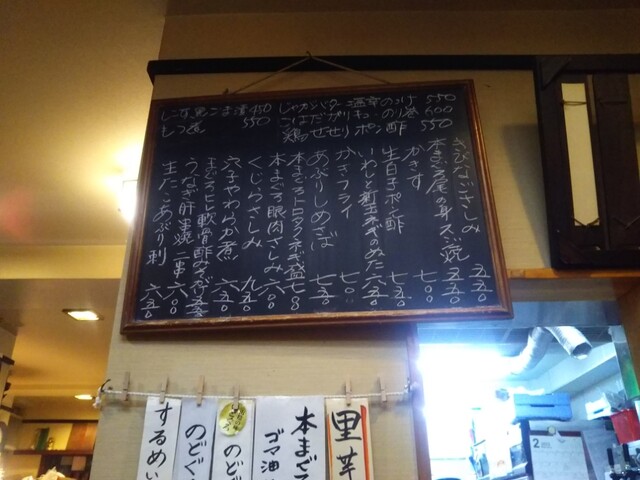 じゃがバター塩辛のっけ 550
こはだガリキューのり巻 600
鶏せせりポン酢 550
しこ玉ごま漬 450
もつ煮 550
きびなごさしみ 五五〇
本まぐろ尾の身スジ焼 五五〇
かきす 七〇〇
生白子ポン酢 七五〇
いわしと新玉ネギのぬた 六五〇
かきフライ 七〇〇
あぶりしめさば 七五〇
本まぐろトロタクネギ盛 七〇〇
本まぐろ眼肉さしみ 六〇〇
くじらさしみ 九五〇
穴子やわらか煮 六五〇
まぐろヒレ軟骨酢みそ 五五〇
うなぎ肝串焼 二串 六〇〇
生たこあぶり刺 六五〇
里芋
本まぐ
ゴマ油
のど
のどぐ
するめい
2